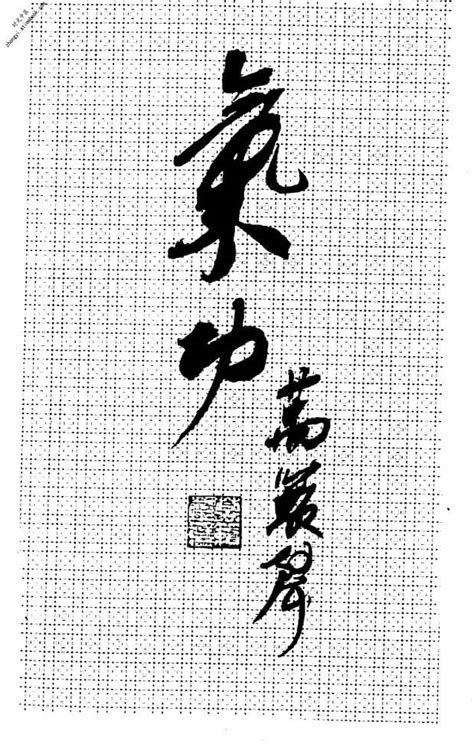 氣功
萬籟聲